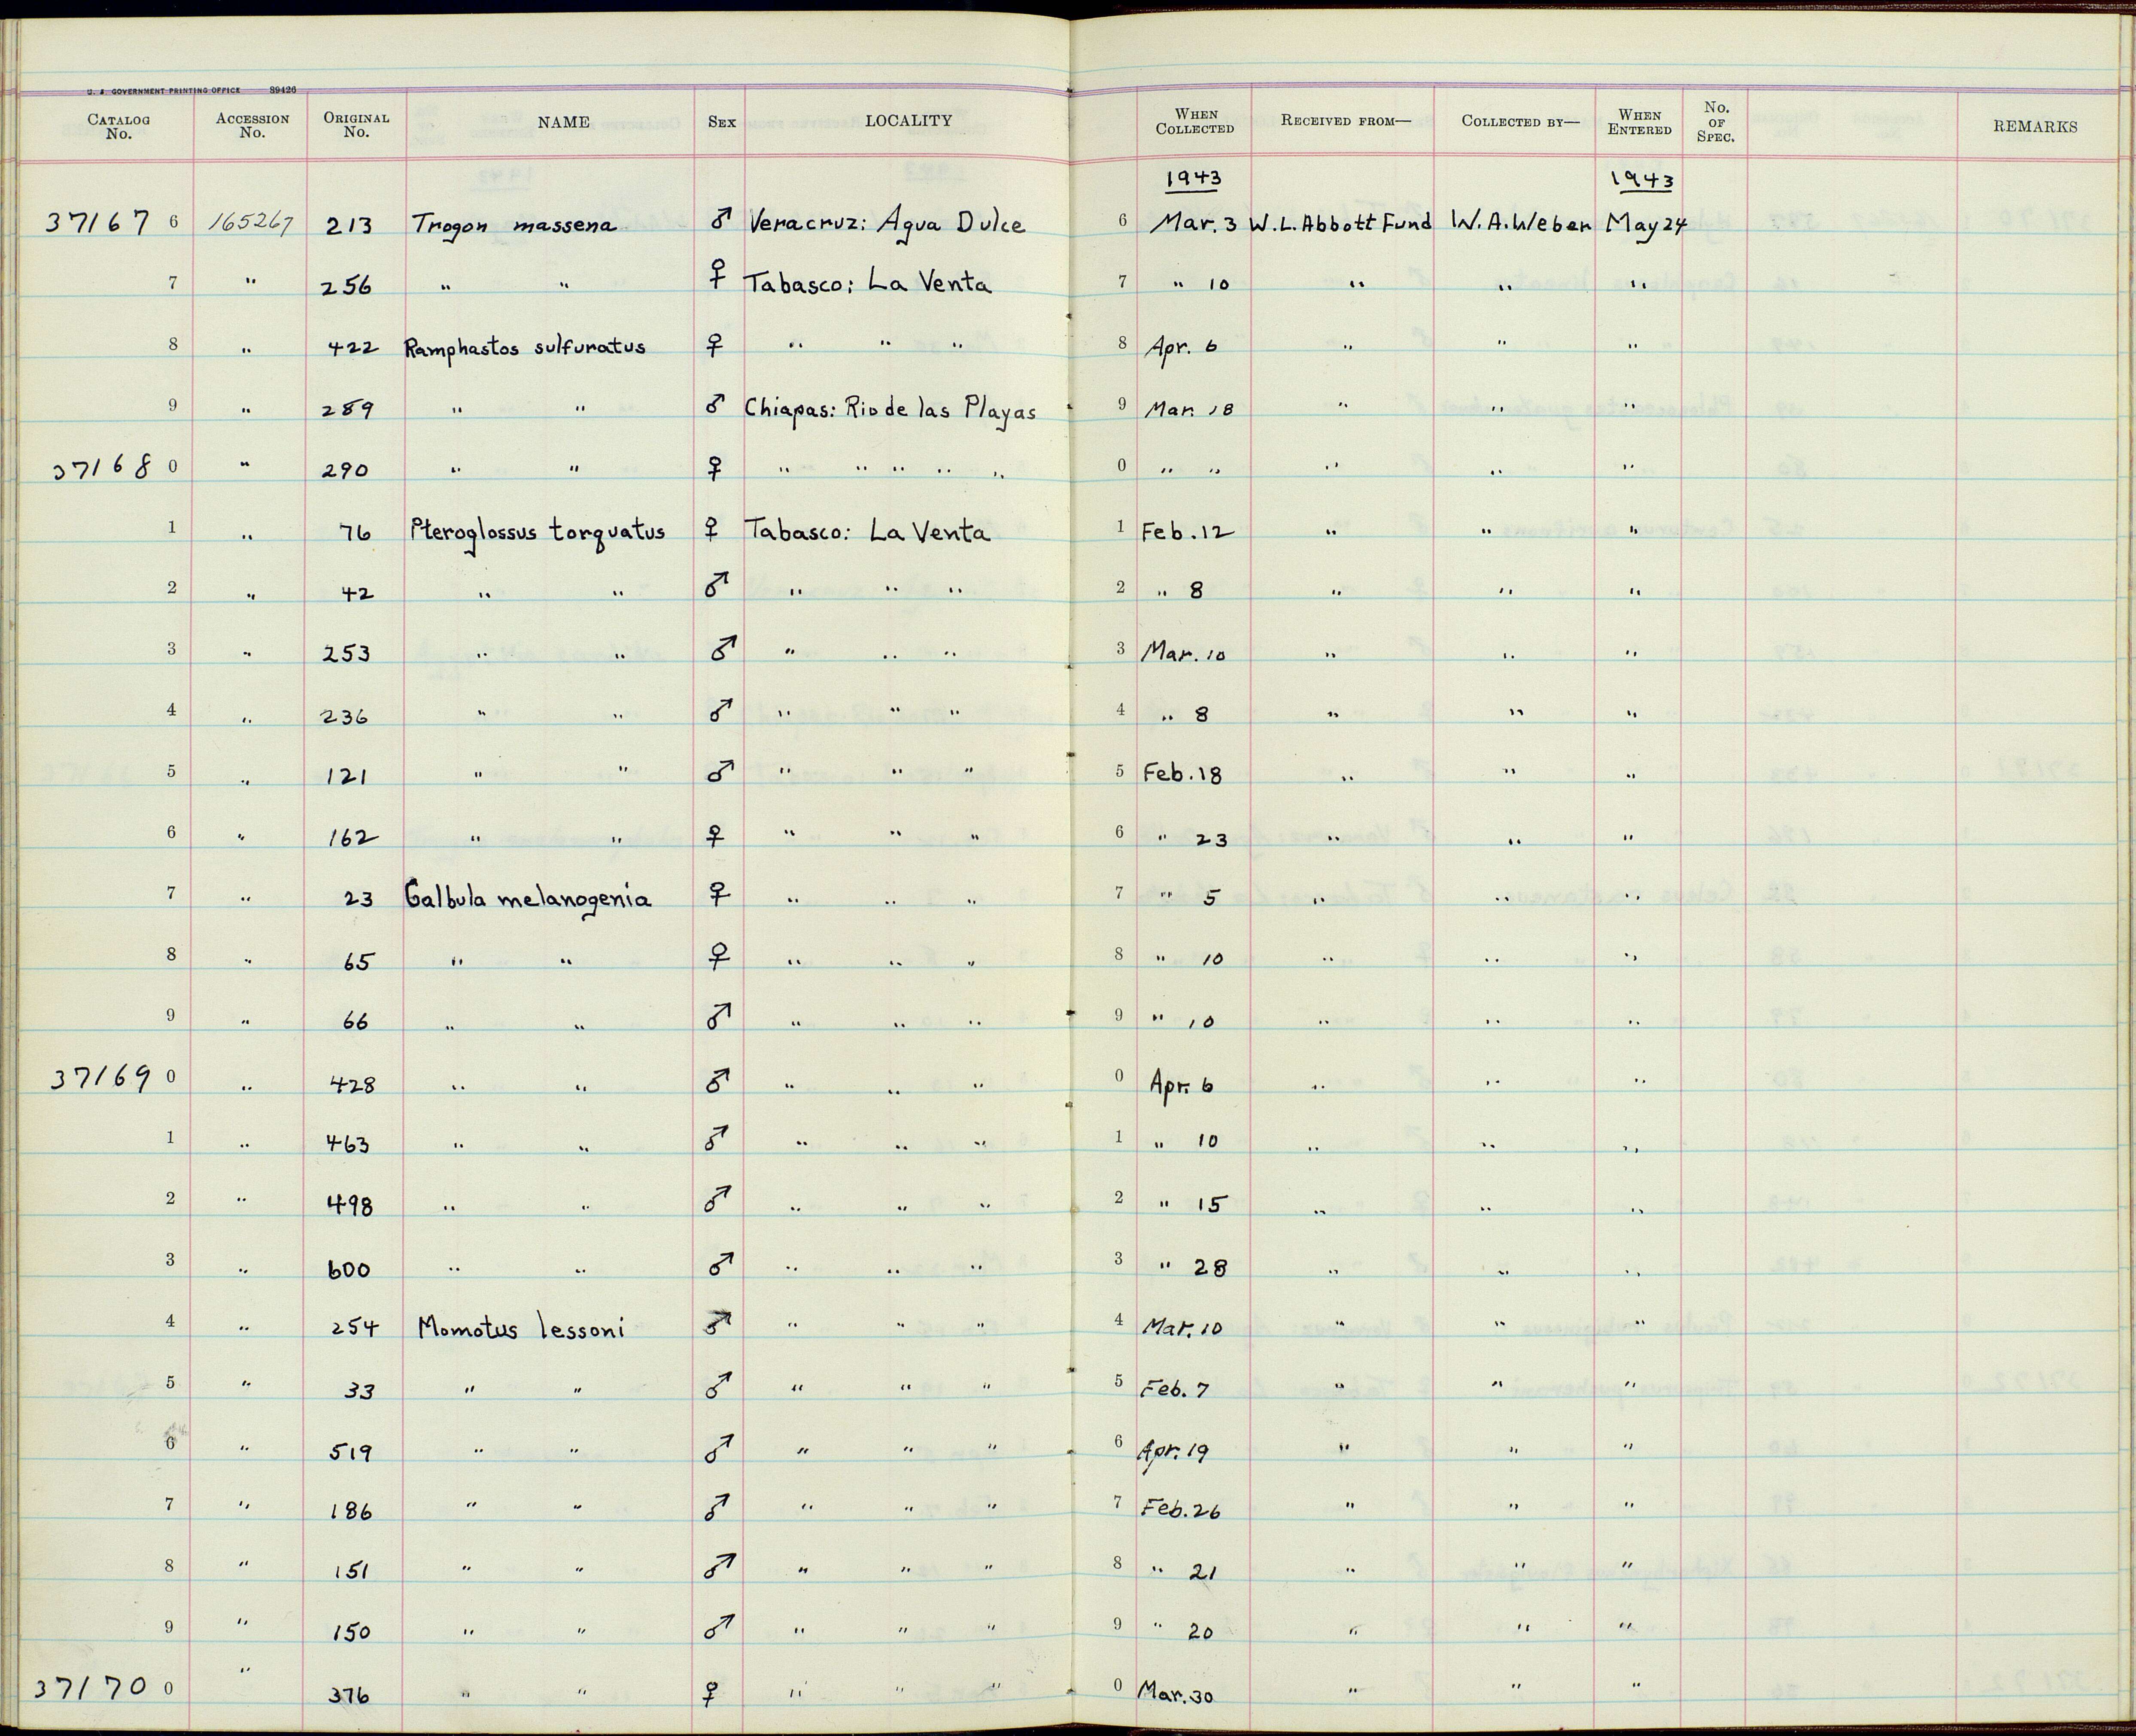 U. S. GOVERNMENT PRINTING OFFICE 89426
CATALOG No. ACCESSION No. ORIGINAL No. NAME SEX LOCALITY WHEN COLLECTED RECEIVED FROM— COLLECTED BY— WHEN ENTERED No. OF SPEC. REMARKS
1943 1943
37167 6 165267 213 Trogon massena ♂ Veracruz: Agua Dulce 6 Mar. 3 W. L. Abbott Fund W. A. Weber May 24
7 " 256 " " ♀ Tabasco: La Venta 7 " 10 " " "
8 " 422 Ramphastos sulfuratus ♀ " " " 8 Apr. 6 " " "
9 " 289 " " ♂ Chiapas: Rio de las Playas 9 Mar. 18 " " "
37168 0 " 290 " " ♀ " " " " " 0 " " " " "
1 " 76 Pteroglossus torquatus ♀ Tabasco: La Venta 1 Feb. 12 " " "
2 " 42 " " ♂ " " " 2 " 8 " " "
3 " 253 " " ♂ " " " 3 Mar. 10 " " "
4 " 236 " " ♂ " " " 4 " 8 " " "
5 " 121 " " ♂ " " " 5 Feb. 18 " " "
6 " 162 " " ♀ " " " 6 " 23 " " "
7 " 23 Galbula melanogenia ♀ " " " 7 " 5 " " "
8 " 65 " " ♀ " " " 8 " 10 " " "
9 " 66 " " ♂ " " " 9 " 10 " " "
37169 0 " 428 " " ♂ " " " 0 Apr. 6 " " "
1 " 463 " " ♂ " " " 1 " 10 " " "
2 " 498 " " ♂ " " " 2 " 15 " " "
3 " 600 " " ♂ " " " 3 " 28 " " "
4 " 254 Momotus lessoni ♂ " " " 4 Mar. 10 " " "
5 " 33 " " ♂ " " " 5 Feb. 7 " " "
6 " 519 " " ♂ " " " 6 Apr. 19 " " "
7 " 186 " " ♂ " " " 7 Feb. 26 " " "
8 " 151 " " ♂ " " " 8 " 21 " " "
9 " 150 " " ♂ " " " 9 " 20 " " "
37170 0 " 376 " " ♀ " " " 0 Mar. 30 " " "